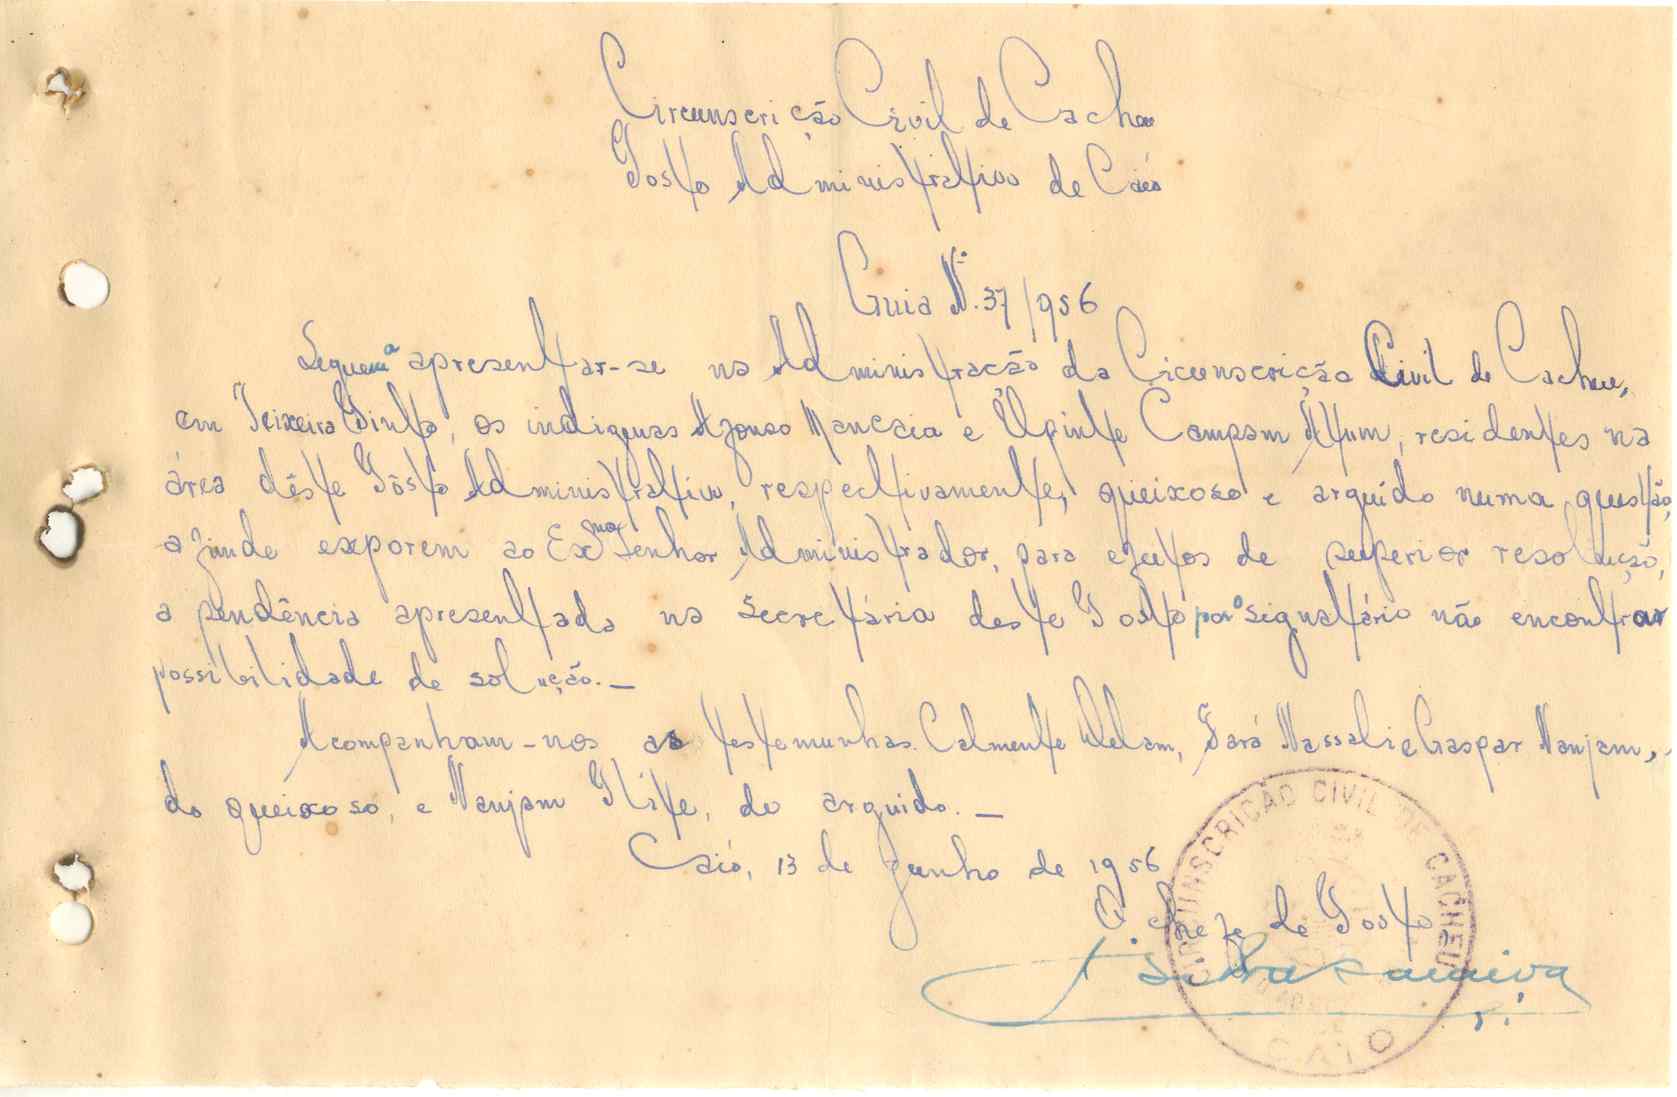 Circunscrição Civil de Cacheu
Posto Administrativo de Caió
Guia N.º 37/956
Seguem a apresentar-se na Administração da Circunscrição Civil de Cacheu,
em Teixeira Pinto, os indigenas Afonso Mancaia e Upinte Campam Atum, residentes na
área dêste Pôsto Administrativo, respectivamente, queixoso e arguído numa questão,
a fim de exporem ao Exmo Senhor Administrador, para efeitos de superior resolução,
a pendência apresentada na Secretária deste Posto por o signatário não encontrar
possibilidade de solução.—
Acompanham-nos as testemunhas Calmente Uelam, Sará Massali e Gaspar Nanjam,
do queixoso, e Nanjam Plife, do arguido.—
Caió, 13 de Junho de 1956
O Chefe de Posto
CIRCUNSCRIÇÃO CIVIL DE CACHEU
CAIÓ